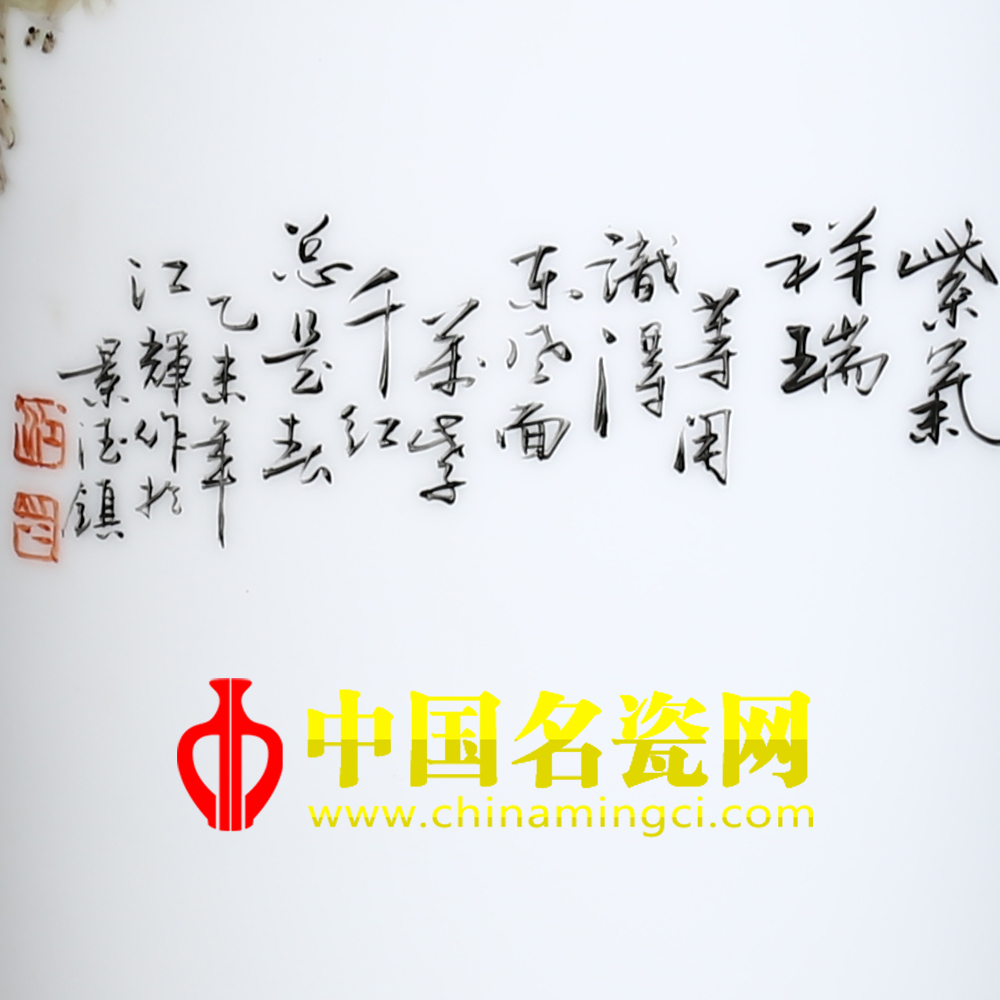 紫氣
祥瑞
等閑
識得
东风面
萬紫
千红
总是春
乙未年
江輝作於
景德鎮
中国名瓷网
www.chinamingci.com